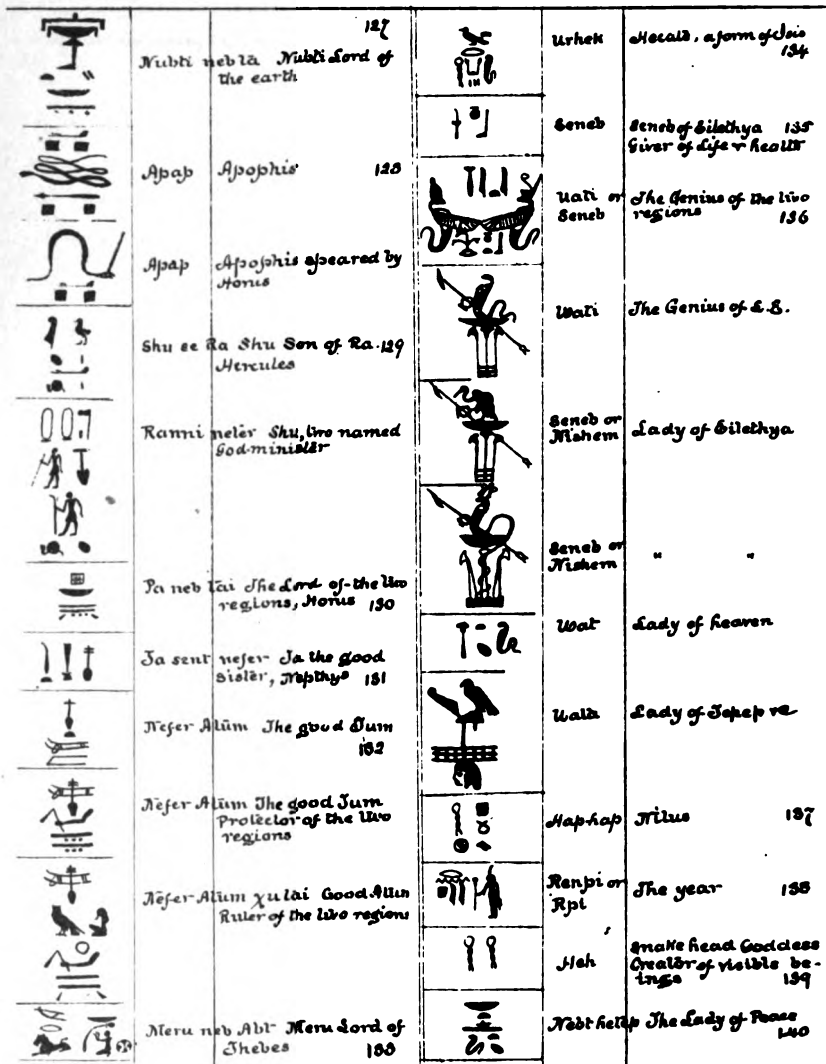 127
Nubti neb ta Nubti Lord of
the earth
Apap Apophis 128
Apap Apophis speared by
Horus
Shu se Ra Shu Son of Ra. 129
Hercules
Ranni neter Shu, two named
God-minister
Pa neb tai The Lord of the two
regions, Horus 130
Ta sent nefer Ta the good
Sister, Nepthys 131
Nefer Atum The good Tum
132
Nefer Atum The good Tum
Protector of the two
regions
Nefer Atum χu tai Good Atum
Ruler of the two regions
Meru neb Abt Meru Lord of
Thebes 133
Urhek Herald, a form of Isis
134
Seneb Seneb of Eilethya 135
Giver of Life & health
Uati or The Genius of the two
Seneb regions 136
Wati The Genius of L.E.
Seneb or Lady of Eilethya
Nishem
Seneb or " "
Nishem
Wat Lady of heaven
Uata Lady of
Hap-hap Nilus 137
Renpi or The year 138
Rpi
Heh Snake head Goddess
Creator of visible be-
ings 139
Nebt hetep The Lady of Peace
140